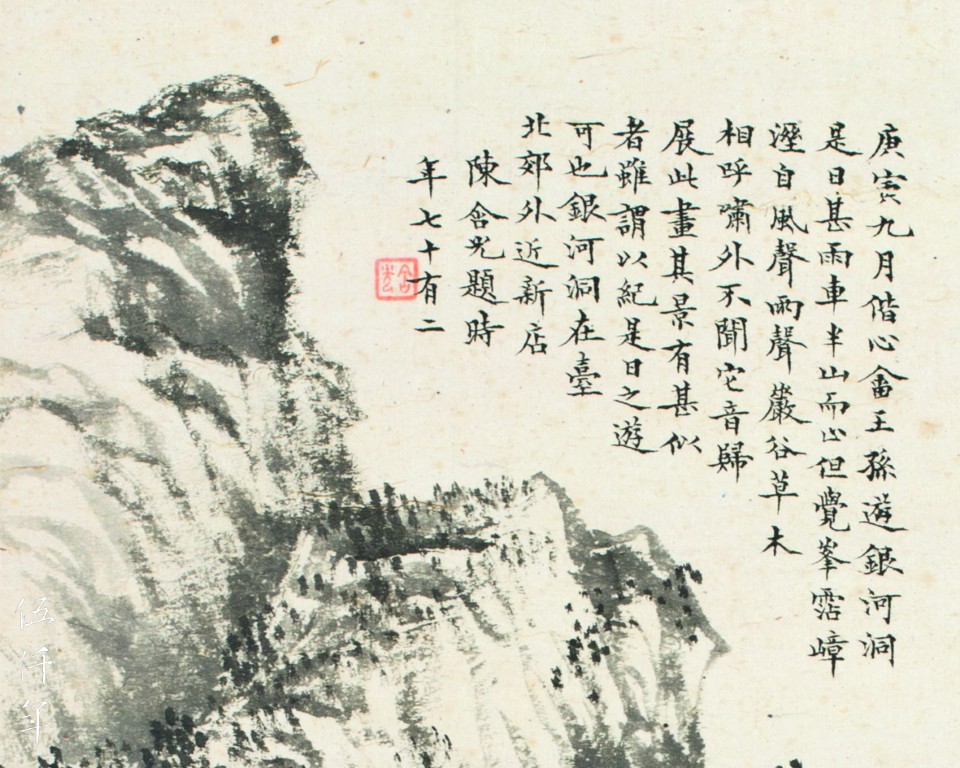 庚寅九月偕心畬王孫遊銀河洞
是日甚雨車半山而止但覺峯霑嶂
溼自風聲雨聲巖谷草木
相呼嘯外不聞它音歸
展此畫其景有甚似
者雖謂以紀是日之遊
可也銀河洞在臺
北郊外近新店
陳含光題時
年七十有二
含光
伍仟年